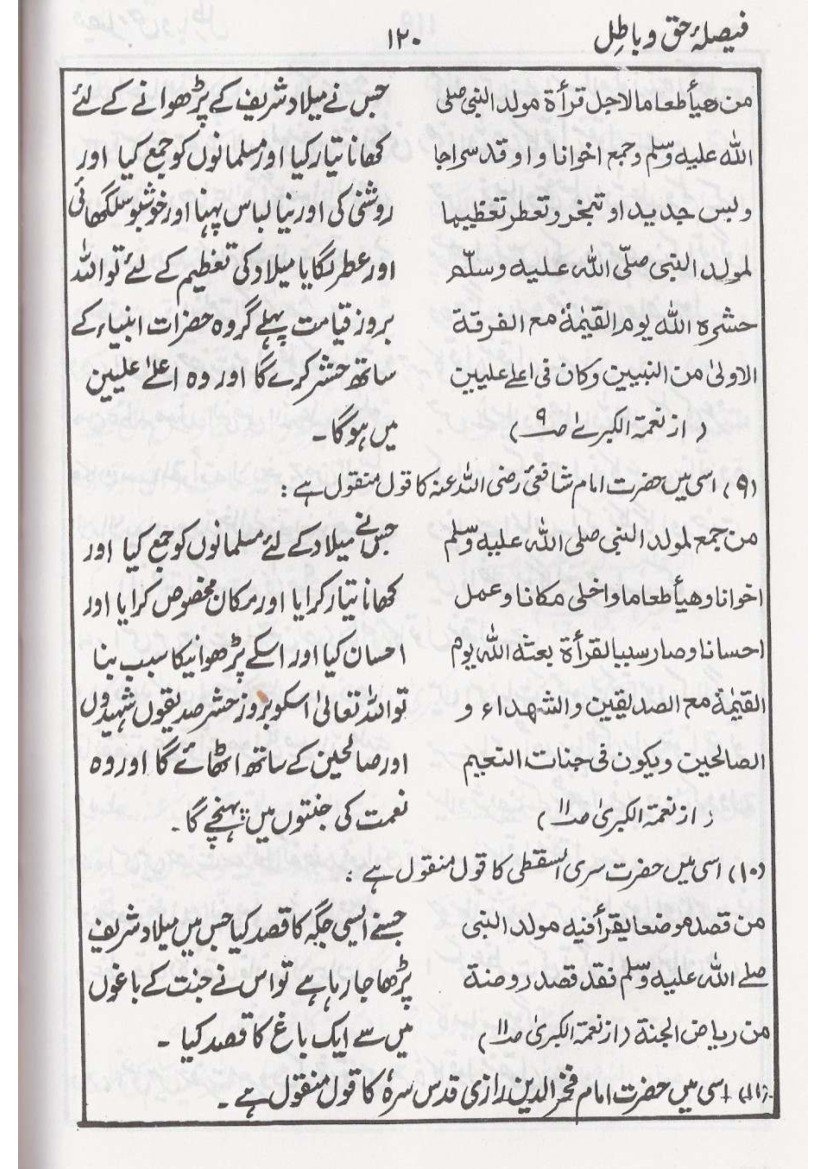 فیصلۂ حق و باطل
۱۲۰
من هيأ طعاما لاجل قرأة مولد النبى صلى
الله عليه وسلم وجمع اخوانا واوقد سراجا
ولبس جديد او تبخر وتعطر تعظيما
لمولد النبى صلّى الله عليه وسلّم
حشره الله يوم القيٰمة مع الفرقة
الاولىٰ من النبيين وكان فى اعلے عليين
(از نعمۃ الکبریٰ صـ۹)
جس نے میلاد شریف کے پڑھوانے کے لئے
کھانا تیار کیا اور مسلمانوں کو جمع کیا اور
روشنی کی اور نیا لباس پہنا اور خوشبو سلگھائی
اور عطر لگایا میلاد کی تعظیم کے لئے تو اللہ
بروز قیامت پہلے گروہ حضرات انبیاء کے
ساتھ حشر کرے گا اور وہ اعلےٰ علیین
میں ہوگا۔
(۹) اسی میں حضرت امام شافعی رضی اللہ عنہ کا قول منقول ہے :
من جمع لمولد النبى صلى الله عليه وسلم
اخوانا وهيأ طعاما واخلى مكانا وعمل
احسانا وصار سببا لقرأة بعثه الله يوم
القيٰمة مع الصديقين والشهداء و
الصالحين ويكون فى جنات النعيم
(از نعمۃ الکبریٰ صـ۱۱)
جس نے میلاد کے لئے مسلمانوں کو جمع کیا اور
کھانا تیار کرایا اور مکان مخصوص کرایا اور
احسان کیا اور اسکے پڑھوانیکا سبب بنا
تو اللہ تعالیٰ اسکو بروز حشر صدیقوں شہیدوں
اور صالحین کے ساتھ اٹھائے گا اور وہ
نعمت کی جنتوں میں پہنچے گا۔
(۱۰) اسی میں حضرت سری السقطی کا قول منقول ہے :
من قصد موضعا يقرأ فيه مولد النبى
صلے الله عليه وسلم فقد قصد روضة
من رياض الجنة (از نعمۃ الکبریٰ صـ۱۱)
جسنے ایسی جگہ کا قصد کیا جس میں میلاد شریف
پڑھا جا رہا ہے تو اس نے جنت کے باغوں
میں سے ایک باغ کا قصد کیا ۔
(۱۱) اسی میں حضرت امام فخر الدین رازی قدس سرہٗ کا قول منقول ہے ۔